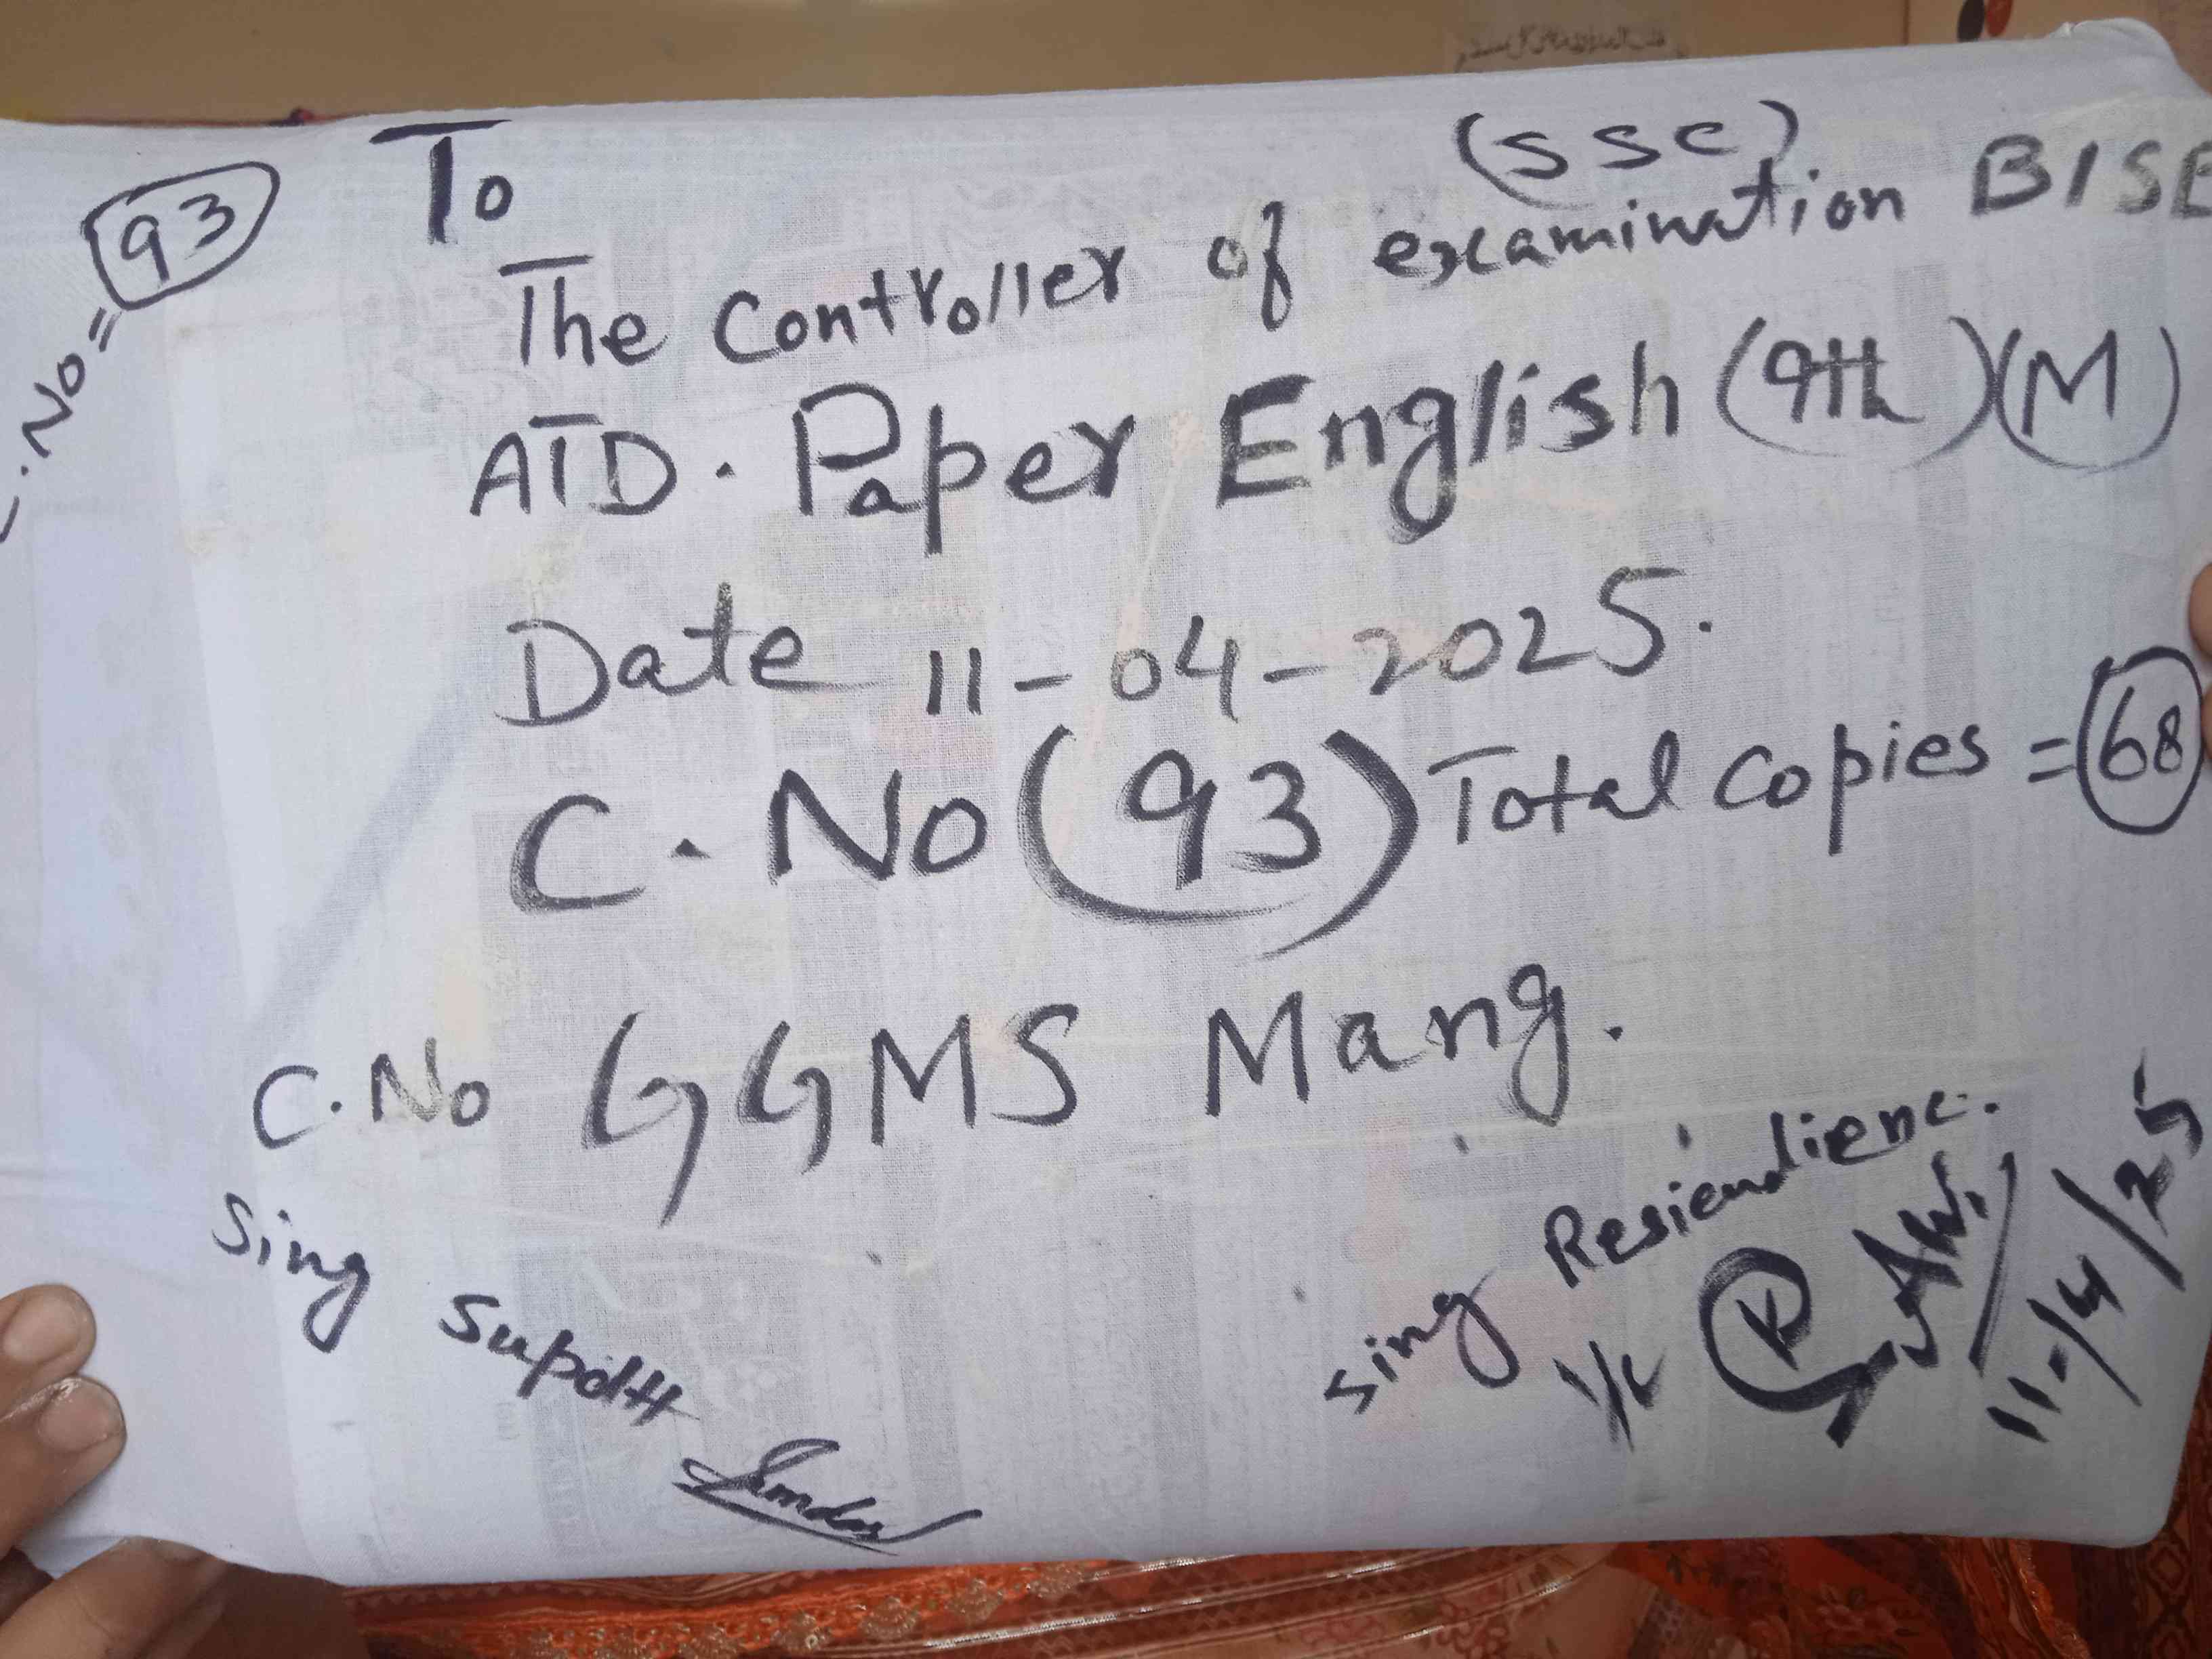 C.No = 93
To
(SSC)
The Controller of examination BISE
ATD. Paper English (9th) (M)
Date 11-04-2025.
C. No (93) Total Copies = 68
C.No GGMS Mang.
Sing Supdtt
Sing Resiendienc.
11-/4/25